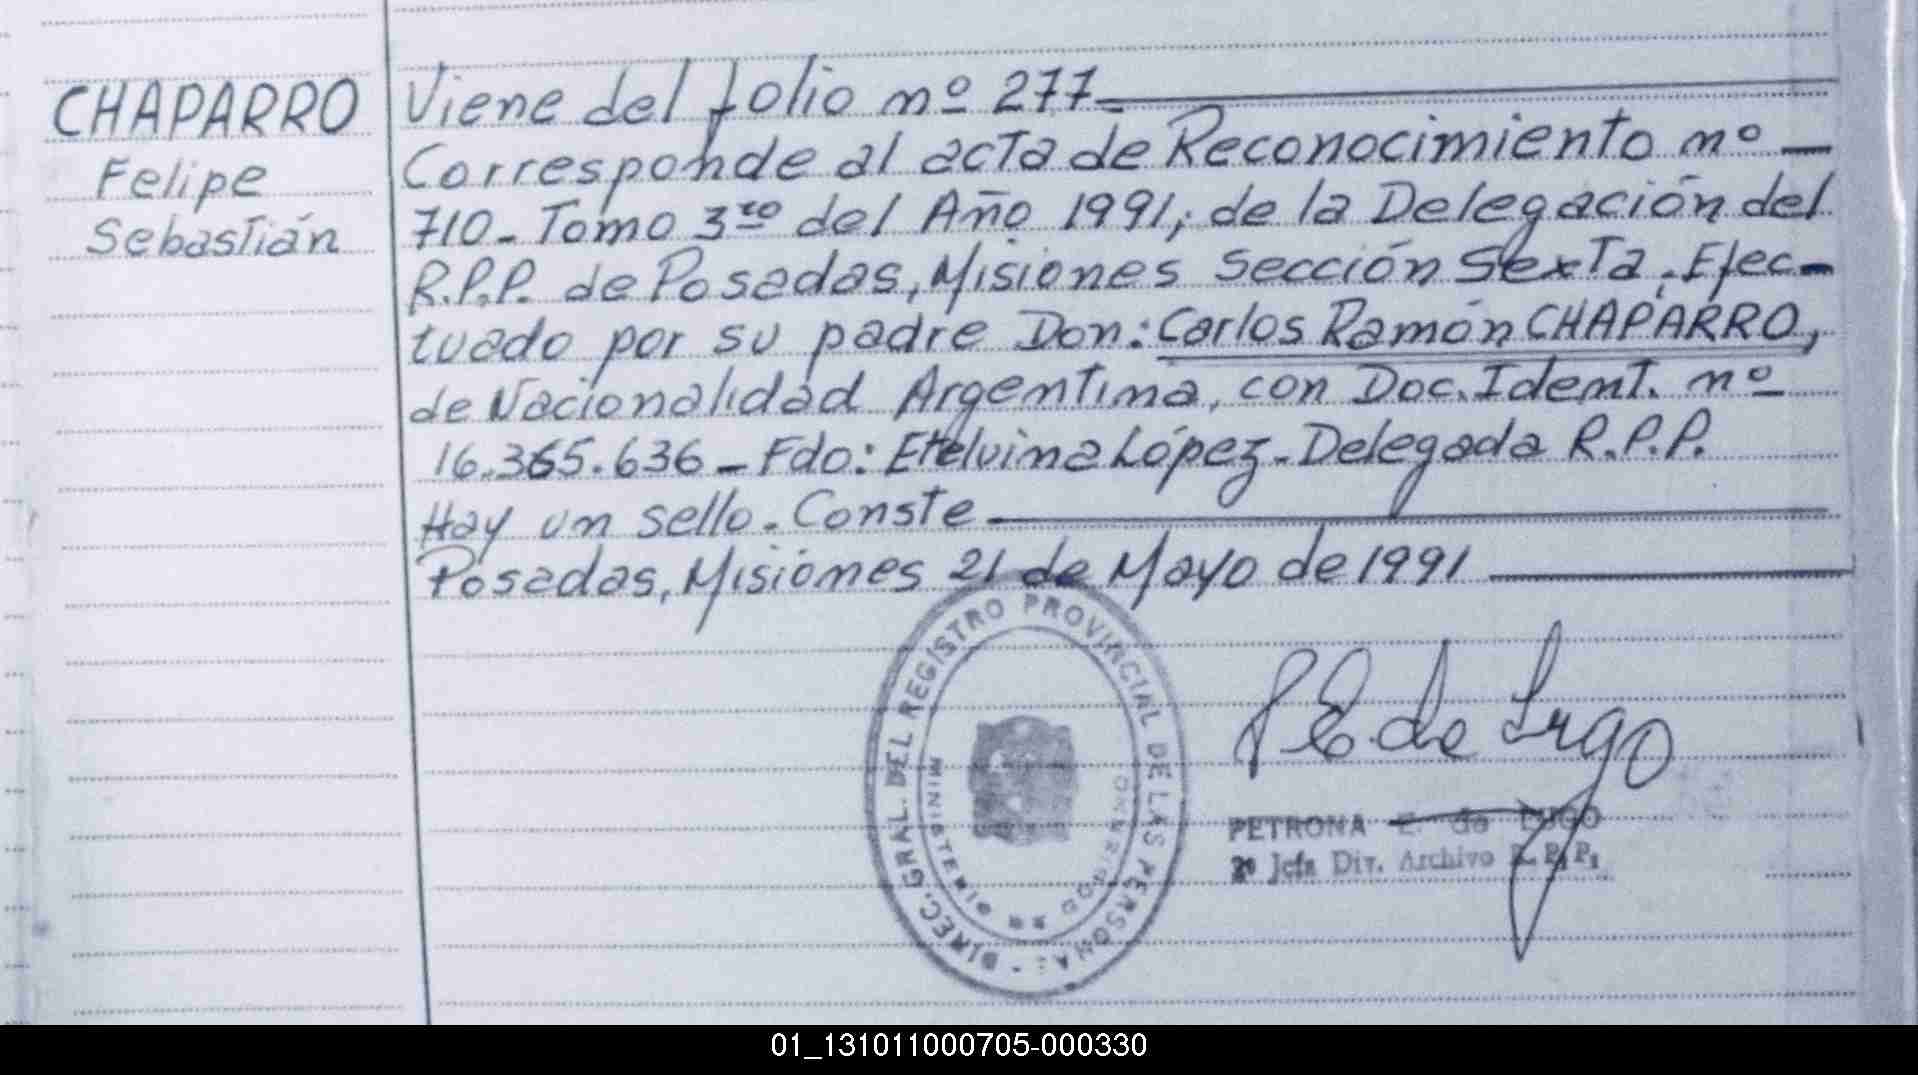 CHAPARRO
Felipe
Sebastián
Viene del folio nº 277_
Corresponde al acta de Reconocimiento nº _
710_ Tomo 3ro del Año 1991, de la Delegación del
R.P.P. de Posadas, Misiones Sección Sexta. Efec-
tuado por su padre Don: Carlos Ramón CHAPARRO,
de Nacionalidad Argentina, con Doc. Ident. nº
16.365.636_ Fdo: Etelvina López. Delegada R.P.P.
Hay un sello. Conste
Posadas, Misiones 21 de Mayo de 1991
DIREC. GRAL. DEL REGISTRO PROVINCIAL DE LAS PERSONAS
MINISTERIO
GOBIERNO
P E. de Lugo
PETRONA E. de LUGO
2º Jefa Div. Archivo R.P.P.
01_131011000705-000330